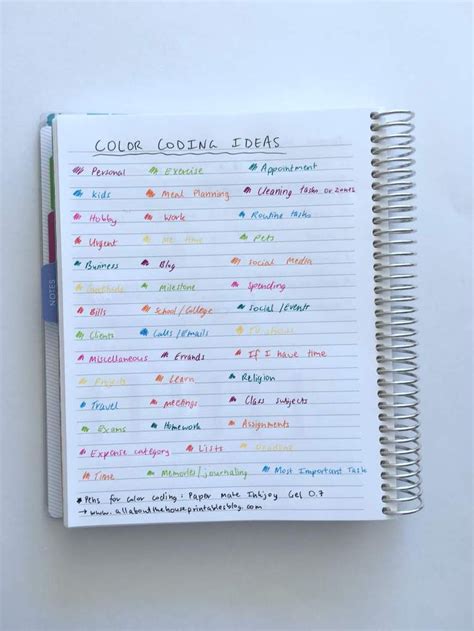 COLOR CODING IDEAS
Personal Exercise Appointment
Kids Meal Planning Cleaning tasks or zones
Hobby Work Routine tasks
Urgent Me time Pets
Business Blog Social Media
Gratitude Milestone Spending
Bills School/College Social/Events
Clients Calls/Emails TV shows
Miscellaneous Errands If I have time
Projects Learn Religion
Travel Meetings Class subjects
Exams Homework Assignments
Expense category Lists
Time Memories/journaling Most Important Task
* Pens for color coding: Paper mate Inkjoy Gel 0.7
→ www.allaboutthehouseprintablesblog.com
NOTES